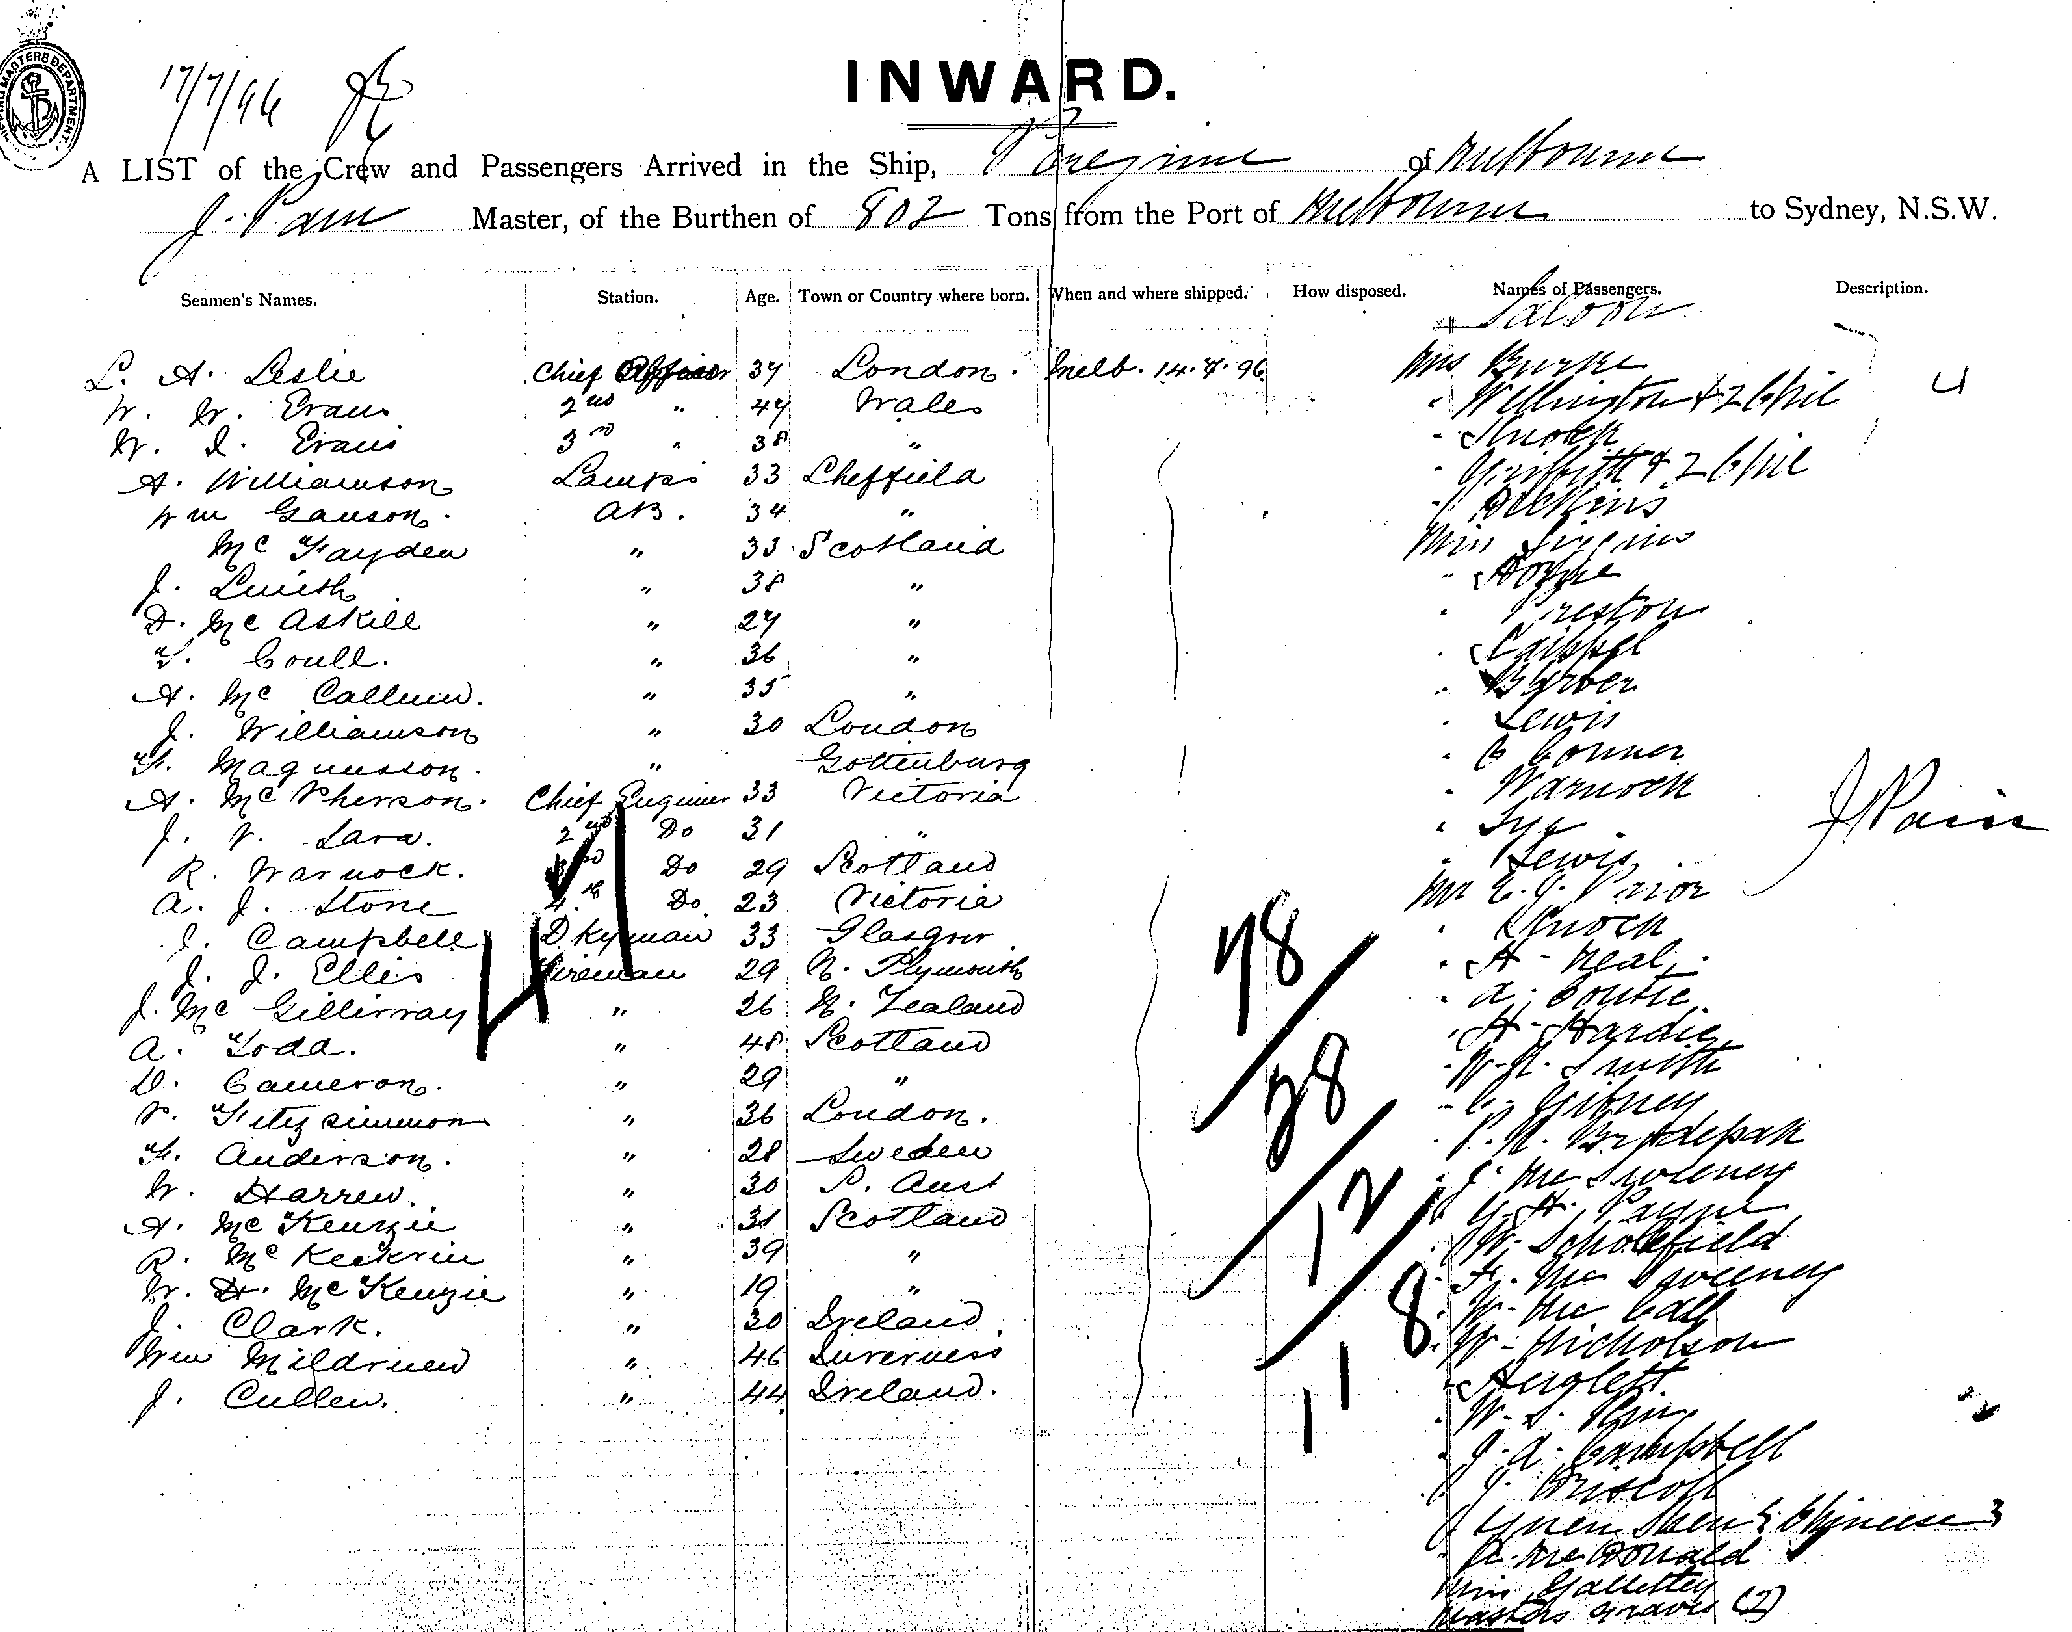 17/7/96
INWARD.
A LIST of the Crew and Passengers Arrived in the Ship, Peregrine of Melbourne
J. Pain Master, of the Burthen of 802 Tons from the Port of Melbourne to Sydney, N.S.W.
Seamen's Names. Station. Age. Town or Country where born. When and where shipped. How disposed. Names of Passengers. Description.
Saloon
L. A. Leslie Chief Officer 37 London. Melb. 14.7.96 Mrs Burke
W. W. Evans 2nd " 47 Wales " Wellington & 2 Chil 4
W. D. Evans 3rd " 38 "
A. Williamson Lamps 33 Sheffield " Griffith & 2 Chil
Wm Ganson. AB. 34 "
Mc Fayden " 33 Scotland Miss
J. Smith " 38 "
D. Mc Askill " 27 " " Preston
F. Coull. " 36 "
A. Mc Callum. " 35 " " Barber
J. Williamson " 30 London " Lewis
F. Magnusson. " Gottenburg " O Connor
A. Mc Pherson. Chief Engineer 33 Victoria " Warnock
J. P. Lara. 2nd Do 31 " "
J Pain
R. Warnock. 3rd Do 29 Scotland " Lewis
A. J. Stone 4th Do 23 Victoria Mr E. J. Prior
J. Campbell D.kyman 33 Glasgow " Knock
J. J. Ellis Fireman 29 N. Plymouth " A. Neal
J. Mc Gillivray " 26 N. Zealand " A. Coutie
A. Todd. " 48 Scotland " H. Hardie
D. Cameron. " 29 " " W. H. Smith
P. Fitzsimmon " 36 London. " C. Gibney
F. Anderson. " 28 Sweden
W. Darrew. " 30 S. Aust " J. Mc Sweeney
A. Mc Kenzie " 31 Scotland " G. H. Payne
R. Mc Keckrin " 39 " " W. Scholefield
W. D. Mc Kenzie " 19 " " F. Mc Sweeney
J. Clark. " 30 Ireland " W. Mc Call
Wm Mildruew " 46 Inverness " W. Nicholson
J. Cullen. " 44 Ireland. " Huglett.
" W. S. King
" J. A. Campbell
" J. Driscoll
Chinese
" R. Mc Donald
Miss
Masters Graves (2)
78
38
12
8
11
41